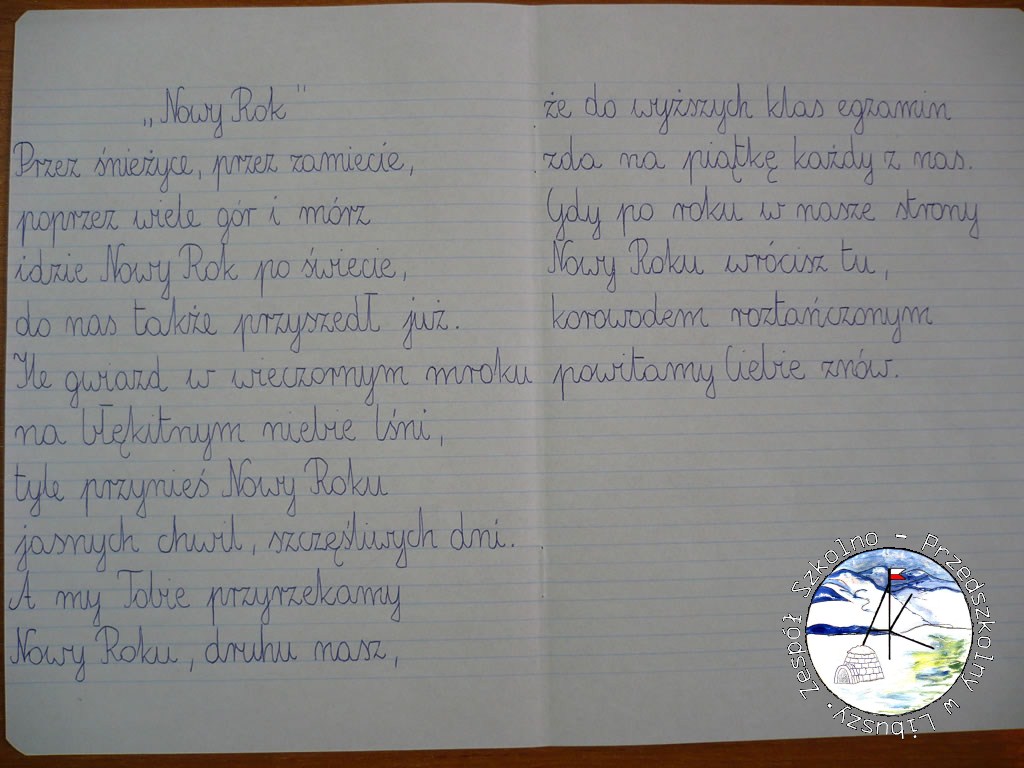 „Nowy Rok"
Przez śnieżyce, przez zamiecie,
poprzez wiele gór i mórz
idzie Nowy Rok po świecie,
do nas także przyszedł już.
Ile gwiazd w wieczornym mroku
na błękitnym niebie lśni,
tyle przynieś Nowy Roku
jasnych chwil, szczęśliwych dni.
A my Tobie przyrzekamy
Nowy Roku, druhu nasz,
że do wyższych klas egzamin
zda na piątkę każdy z nas.
Gdy po roku w nasze strony
Nowy Roku wrócisz tu,
korowodem roztańczonym
powitamy Ciebie znów.
Zespół Szkolno - Przedszkolny w Libuszy.